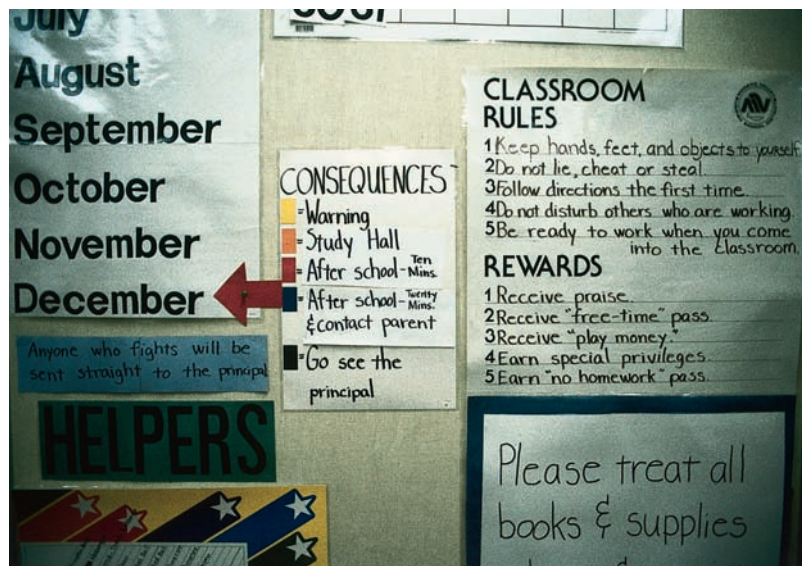 July
August
September
October
November
December
Anyone who fights will be
sent straight to the principal
HELPERS
CONSEQUENCES
=Warning
=Study Hall
=After school-Ten
Mins.
=After school-Twenty
Mins.
&contact parent
=Go see the
principal
CLASSROOM
RULES
1 Keep hands, feet, and objects to yourself.
2 Do not lie, cheat or steal.
3 Follow directions the first time.
4 Do not disturb others who are working.
5 Be ready to work when you come
into the classroom.
REWARDS
1 Receive praise.
2 Receive "free-time" pass.
3 Receive "play money."
4 Earn special privileges.
5 Earn "no homework" pass.
Please treat all
books & supplies